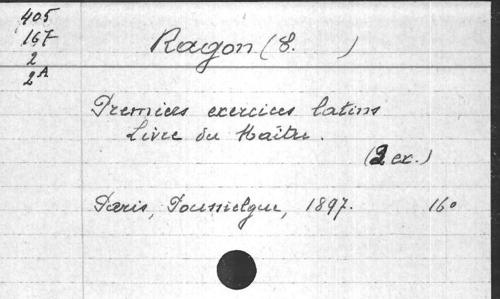 405
167
2
2A
Ragon (E. )
Premiers exercices latins
Livre du Maître.
(2 ex.)
Paris, Poussielgue, 1897. 16°